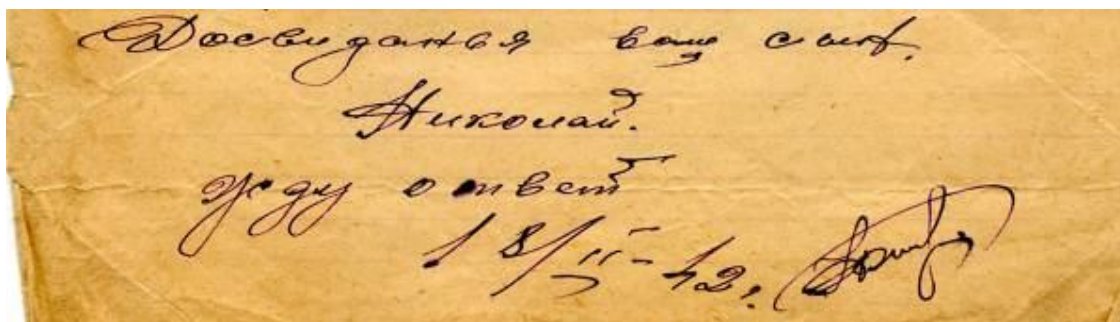 Досвиданья ваш сын.
Николай.
жду ответ
18/II-42г.